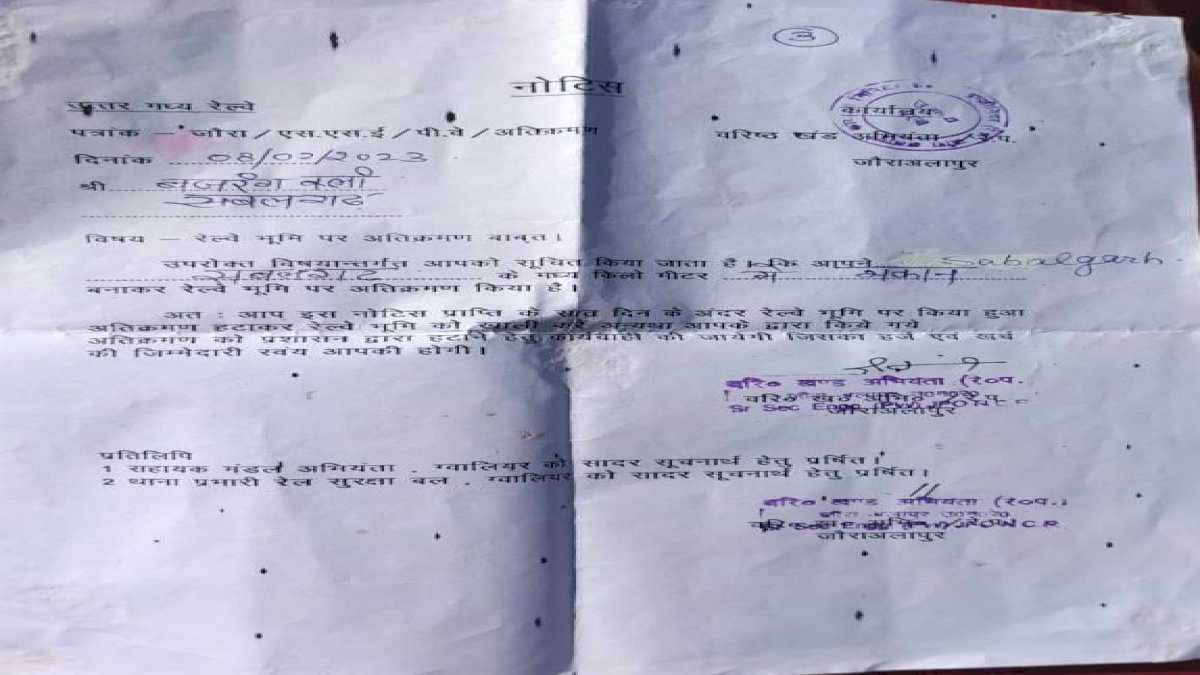 ③
नोटिस
उत्तर मध्य रेल्वे
कार्यालय
पत्रांक – जौरा / एस.एस.ई / पी.वे / अतिक्रमण
वरिष्ठ खंड अभियंता
दिनांक 08/02/2023
जौराअलापुर
श्री बजरंग वली
सबलगढ
विषय – रेल्वे भूमि पर अतिक्रमण बाबत।
उपरोक्त विषयान्तर्गत आपको सूचित किया जाता है। कि आपने Sabalgarh
सबलगढ के मध्य किलो मीटर में मकान
बनाकर रेल्वे भूमि पर अतिक्रमण किया है।
अत : आप इस नोटिस प्राप्ति के सात दिन के अंदर रेल्वे भूमि पर किया हुआ
अतिक्रमण हटाकर रेल्वे भूमि को खाली करे अन्यथा आपके द्वारा किये गये
अतिक्रमण को प्रशासन द्वारा हटाने हेतु कार्यवाही की जायेगी जिसका हर्ज एवं खर्च
की जिम्मेदारी स्वय आपकी होगी।
वरि० खण्ड अभियंता (र०प.
जौराअलापुर
प्रतिलिपि
1 सहायक मंडल अभियंता . ग्वालियर को सादर सूचनार्थ हेतु प्रर्षित।
2 थाना प्रभारी रेल सुरक्षा बल . ग्वालियर को सादर सूचनार्थ हेतु प्रर्षित।
वरि० खण्ड अभियंता (र०प.
जौराअलापुर